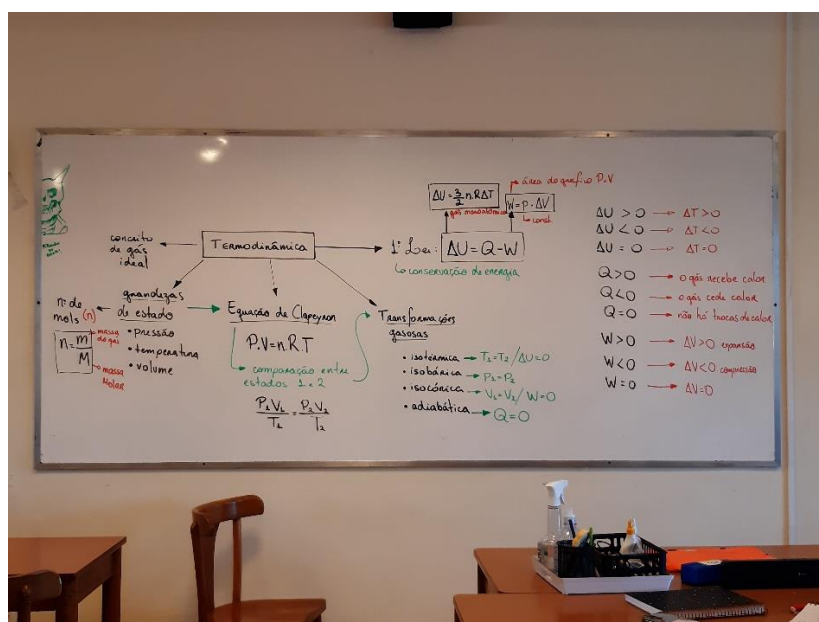 Termodinâmica
conceito
de gás
ideal
grandezas
de estado
• pressão
• temperatura
• volume
nº de
mols (n)
n = m/M
massa
do gás
massa
molar
Equação de Clapeyron
P.V = n.R.T
comparação entre
estados 1 e 2
P₁V₁/T₁ = P₂V₂/T₂
Transformações
gasosas
• isotérmica → T₁ = T₂ / ΔU = 0
• isobárica → P₁ = P₂
• isocórica → V₁ = V₂ / W = 0
• adiabática → Q = 0
1ª Lei: ΔU = Q - W
↳ conservação de energia
ΔU = 3/2 n.RΔT
gás monoatômico
área do gráfico P.V
W = p . ΔV
↳ const.
ΔU > 0 → ΔT > 0
ΔU < 0 → ΔT < 0
ΔU = 0 → ΔT = 0
Q > 0 → o gás recebe calor
Q < 0 → o gás cede calor
Q = 0 → não há trocas de calor
W > 0 → ΔV > 0 expansão
W < 0 → ΔV < 0 compressão
W = 0 → ΔV = 0